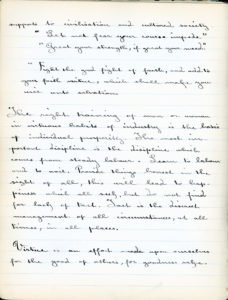 support to civilization and cultured society
" Let not fear your course impede."
" Great your strength, if great your need."
" Fight the good fight of faith, and add to
your faith virtue, which shall make you
wise unto salvation
The right training of man or woman
in virtuous habits of industry is the basis
of individual prosperity. The most im-
portant discipline is the discipline which
comes from steady labour. Learn to labour
and to wait. Provide things honest in the
sight of all, this will lead to hap-
piness which all seek, but do not find
for lack of tact. Tact is the discreet
management of all circumstances, at all
times, in all places.
Virtue is an effort made upon ourselves
for the good of others, for goodness sake.